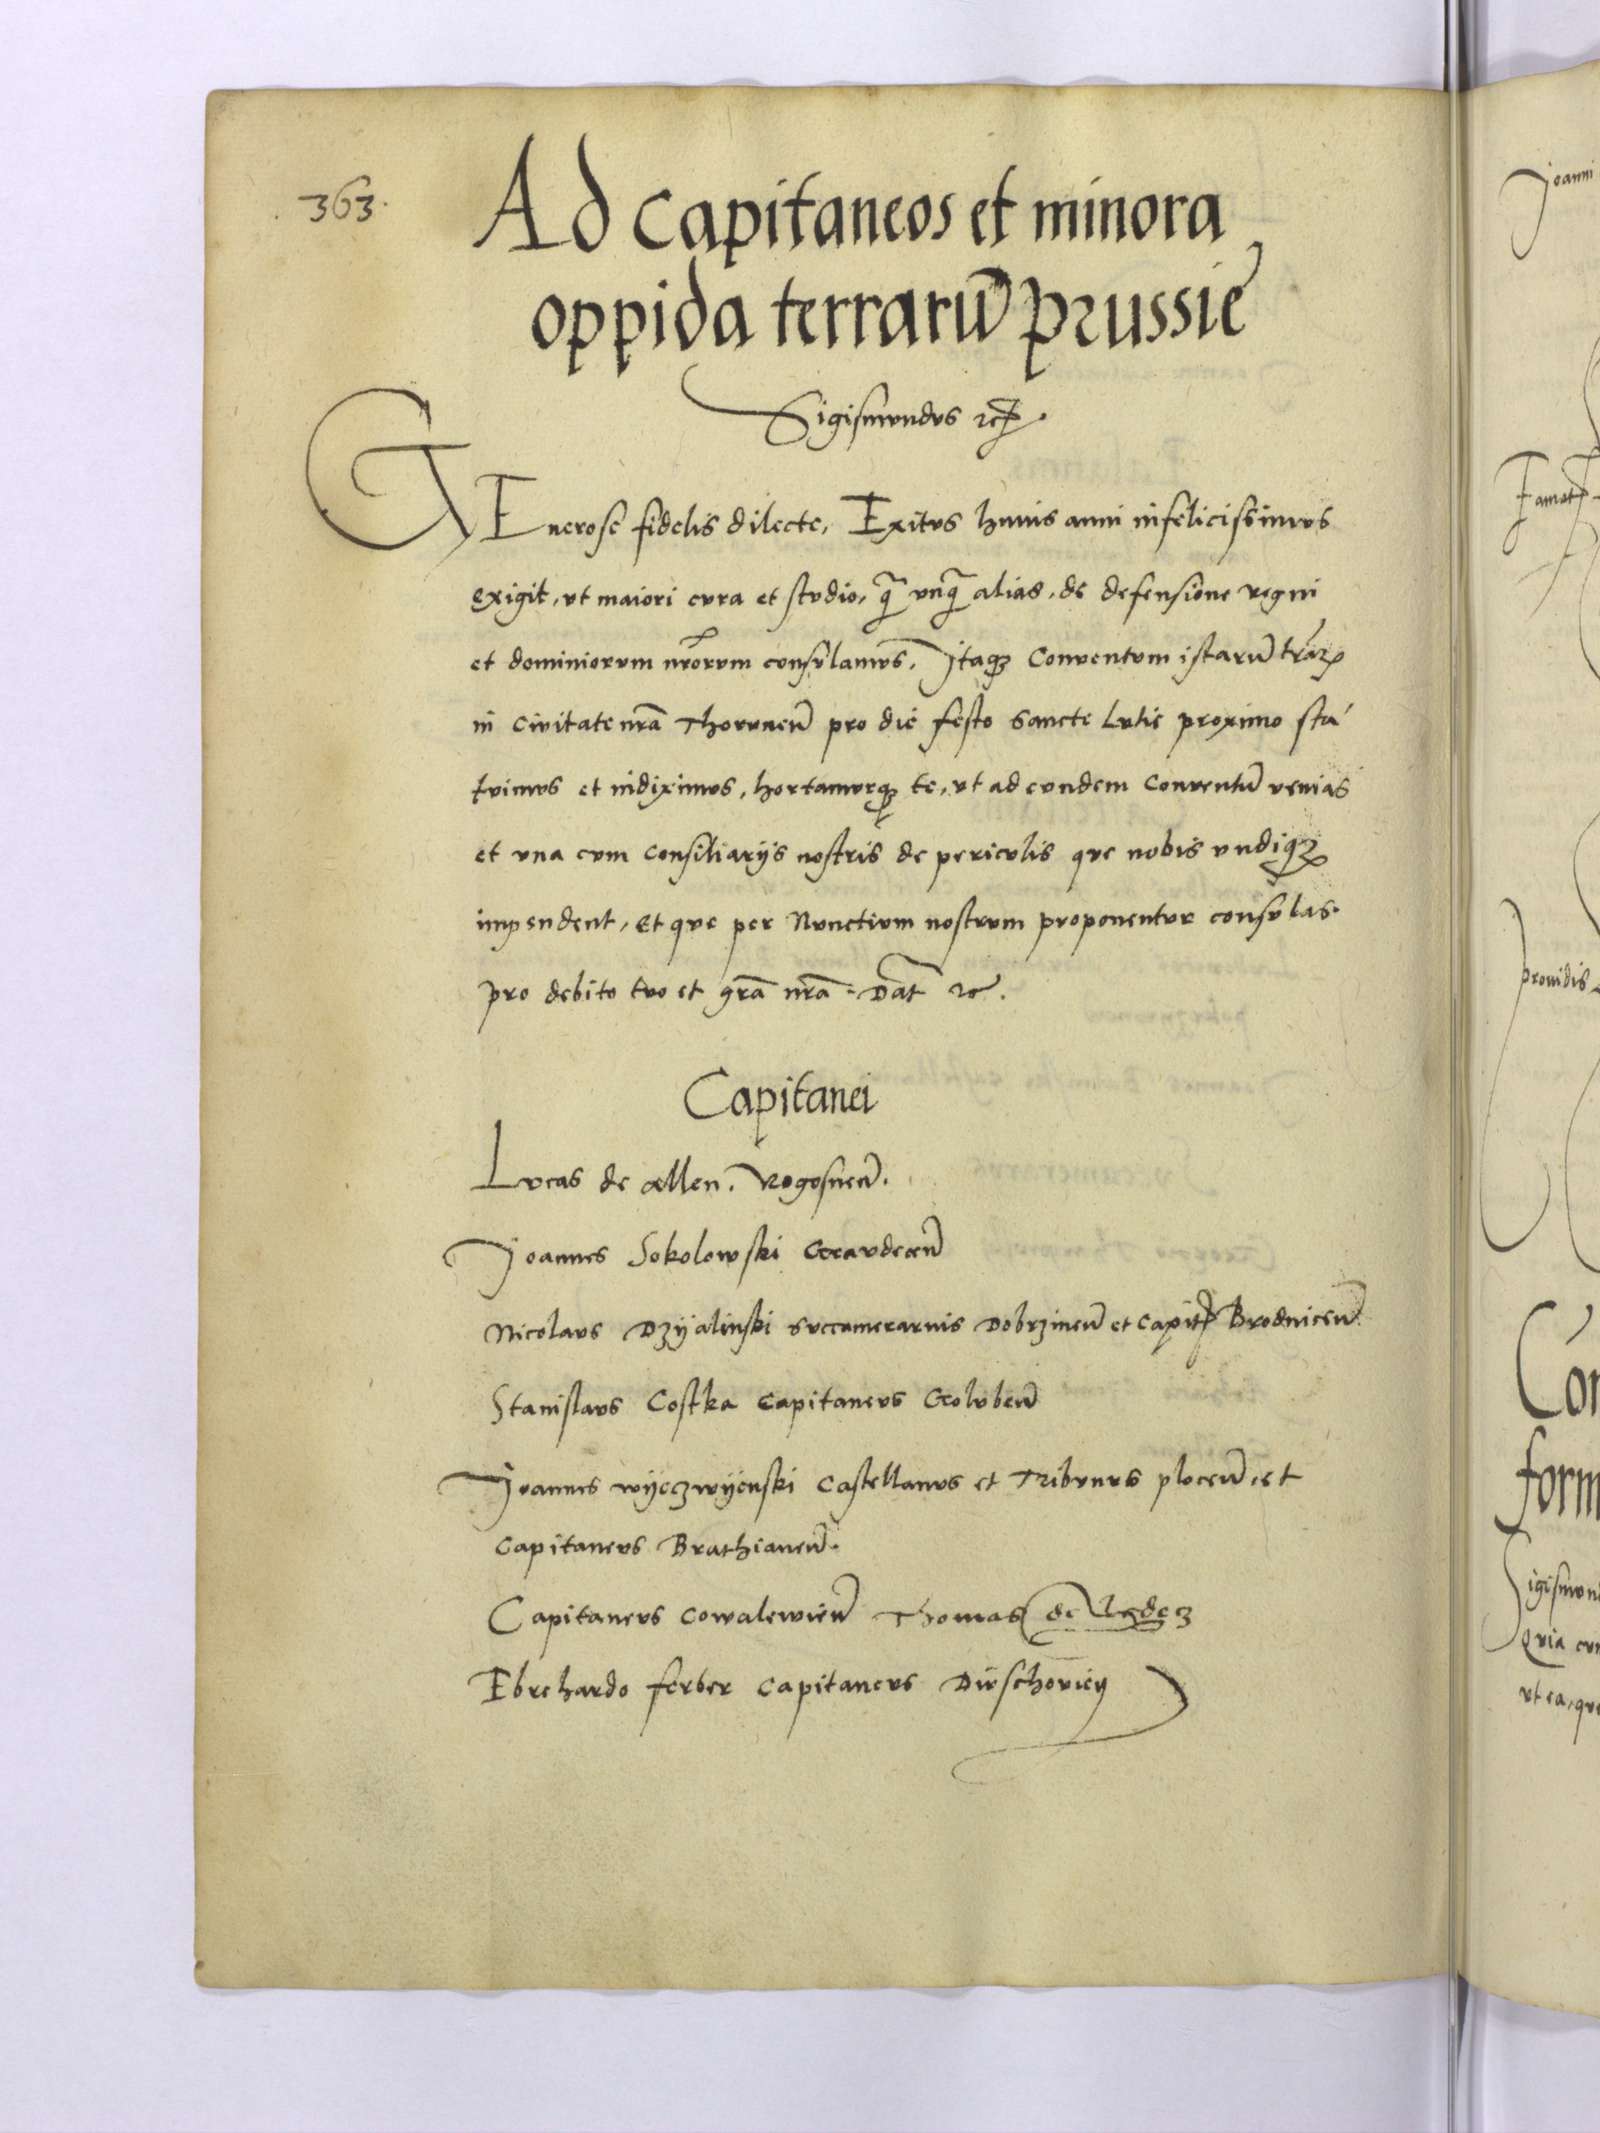 363.
Ad capitaneos et minora
oppida terrarū prussie
Sigismundus etc.
GEnerose fidelis dilecte, Exitus huius anni infelicissimus
exigit, ut maiori cura et studio, q̄ unq̄ alias, de defensione regni
et dominiorum nr̄orum consulamus. Itaq; Conventum istarū trārꝝ
in Civitate nrā Thoruneñ pro die festo Sancte Lutie proximo sta
tuimus et indiximus, hortamurq; te, ut ad eundem Conventū venias
et una cum Consiliarijs nostris de periculis que nobis undiq;
impendent, Et que per Nunctium nostrum proponentur consulas.
pro debito tuo et grā nrā. Dat̄ etc.
Capitanei
Lucas de Allen. Rogosneñ.
Joannes Sokolowski Graudeceñ
Nicolaus Dzyalinski Succamerarius Dobrzineñ et Capit. Brodniceñ
Stanislaus Costka Capitaneus Golubeñ
Joannes wyeczwyenski Castellanus et Tribunus ploceñ. et
Capitaneus Brathianeñ.
Capitaneus Cowalewieñ Thomas de
Ebrehardo ferber Capitaneus Dirschoviey
Joanni
Famat
providis
Con
form
Sigismun
Quia cu
ut ea, que